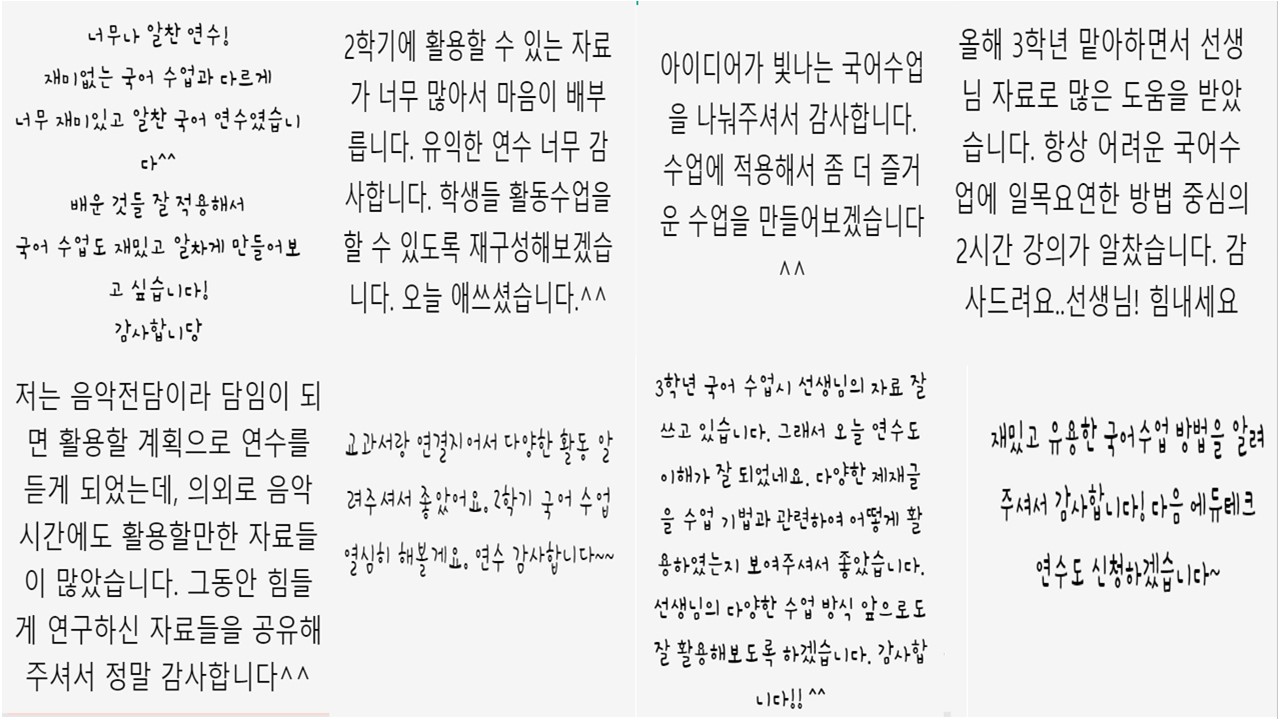 너무나 알찬 연수!
재미없는 국어 수업과 다르게
너무 재미있고 알찬 국어 연수였습니
다^^
배운 것들 잘 적용해서
국어 수업도 재밌고 알차게 만들어보
고 싶습니다!
감사합니당
2학기에 활용할 수 있는 자료
가 너무 많아서 마음이 배부
릅니다. 유익한 연수 너무 감
사합니다. 학생들 활동수업을
할 수 있도록 재구성해보겠습
니다. 오늘 애쓰셨습니다.^^
아이디어가 빛나는 국어수업
을 나눠주셔서 감사합니다.
수업에 적용해서 좀 더 즐거
운 수업을 만들어보겠습니다
^^
올해 3학년 맡아하면서 선생
님 자료로 많은 도움을 받았
습니다. 항상 어려운 국어수
업에 일목요연한 방법 중심의
2시간 강의가 알찼습니다. 감
사드려요..선생님! 힘내세요
저는 음악전담이라 담임이 되
면 활용할 계획으로 연수를
듣게 되었는데, 의외로 음악
시간에도 활용할만한 자료들
이 많았습니다. 그동안 힘들
게 연구하신 자료들을 공유해
주셔서 정말 감사합니다^^
교과서랑 연결지어서 다양한 활동 알
려주셔서 좋았어요. 2학기 국어 수업
열심히 해볼게요. 연수 감사합니다~~
3학년 국어 수업시 선생님의 자료 잘
쓰고 있습니다. 그래서 오늘 연수도
이해가 잘 되었네요. 다양한 제재글
을 수업 기법과 관련하여 어떻게 활
용하였는지 보여주셔서 좋았습니다.
선생님의 다양한 수업 방식 앞으로도
잘 활용해보도록 하겠습니다. 감사합
니다!! ^^
재밌고 유용한 국어수업 방법을 알려
주셔서 감사합니다! 다음 에듀테크
연수도 신청하겠습니다~